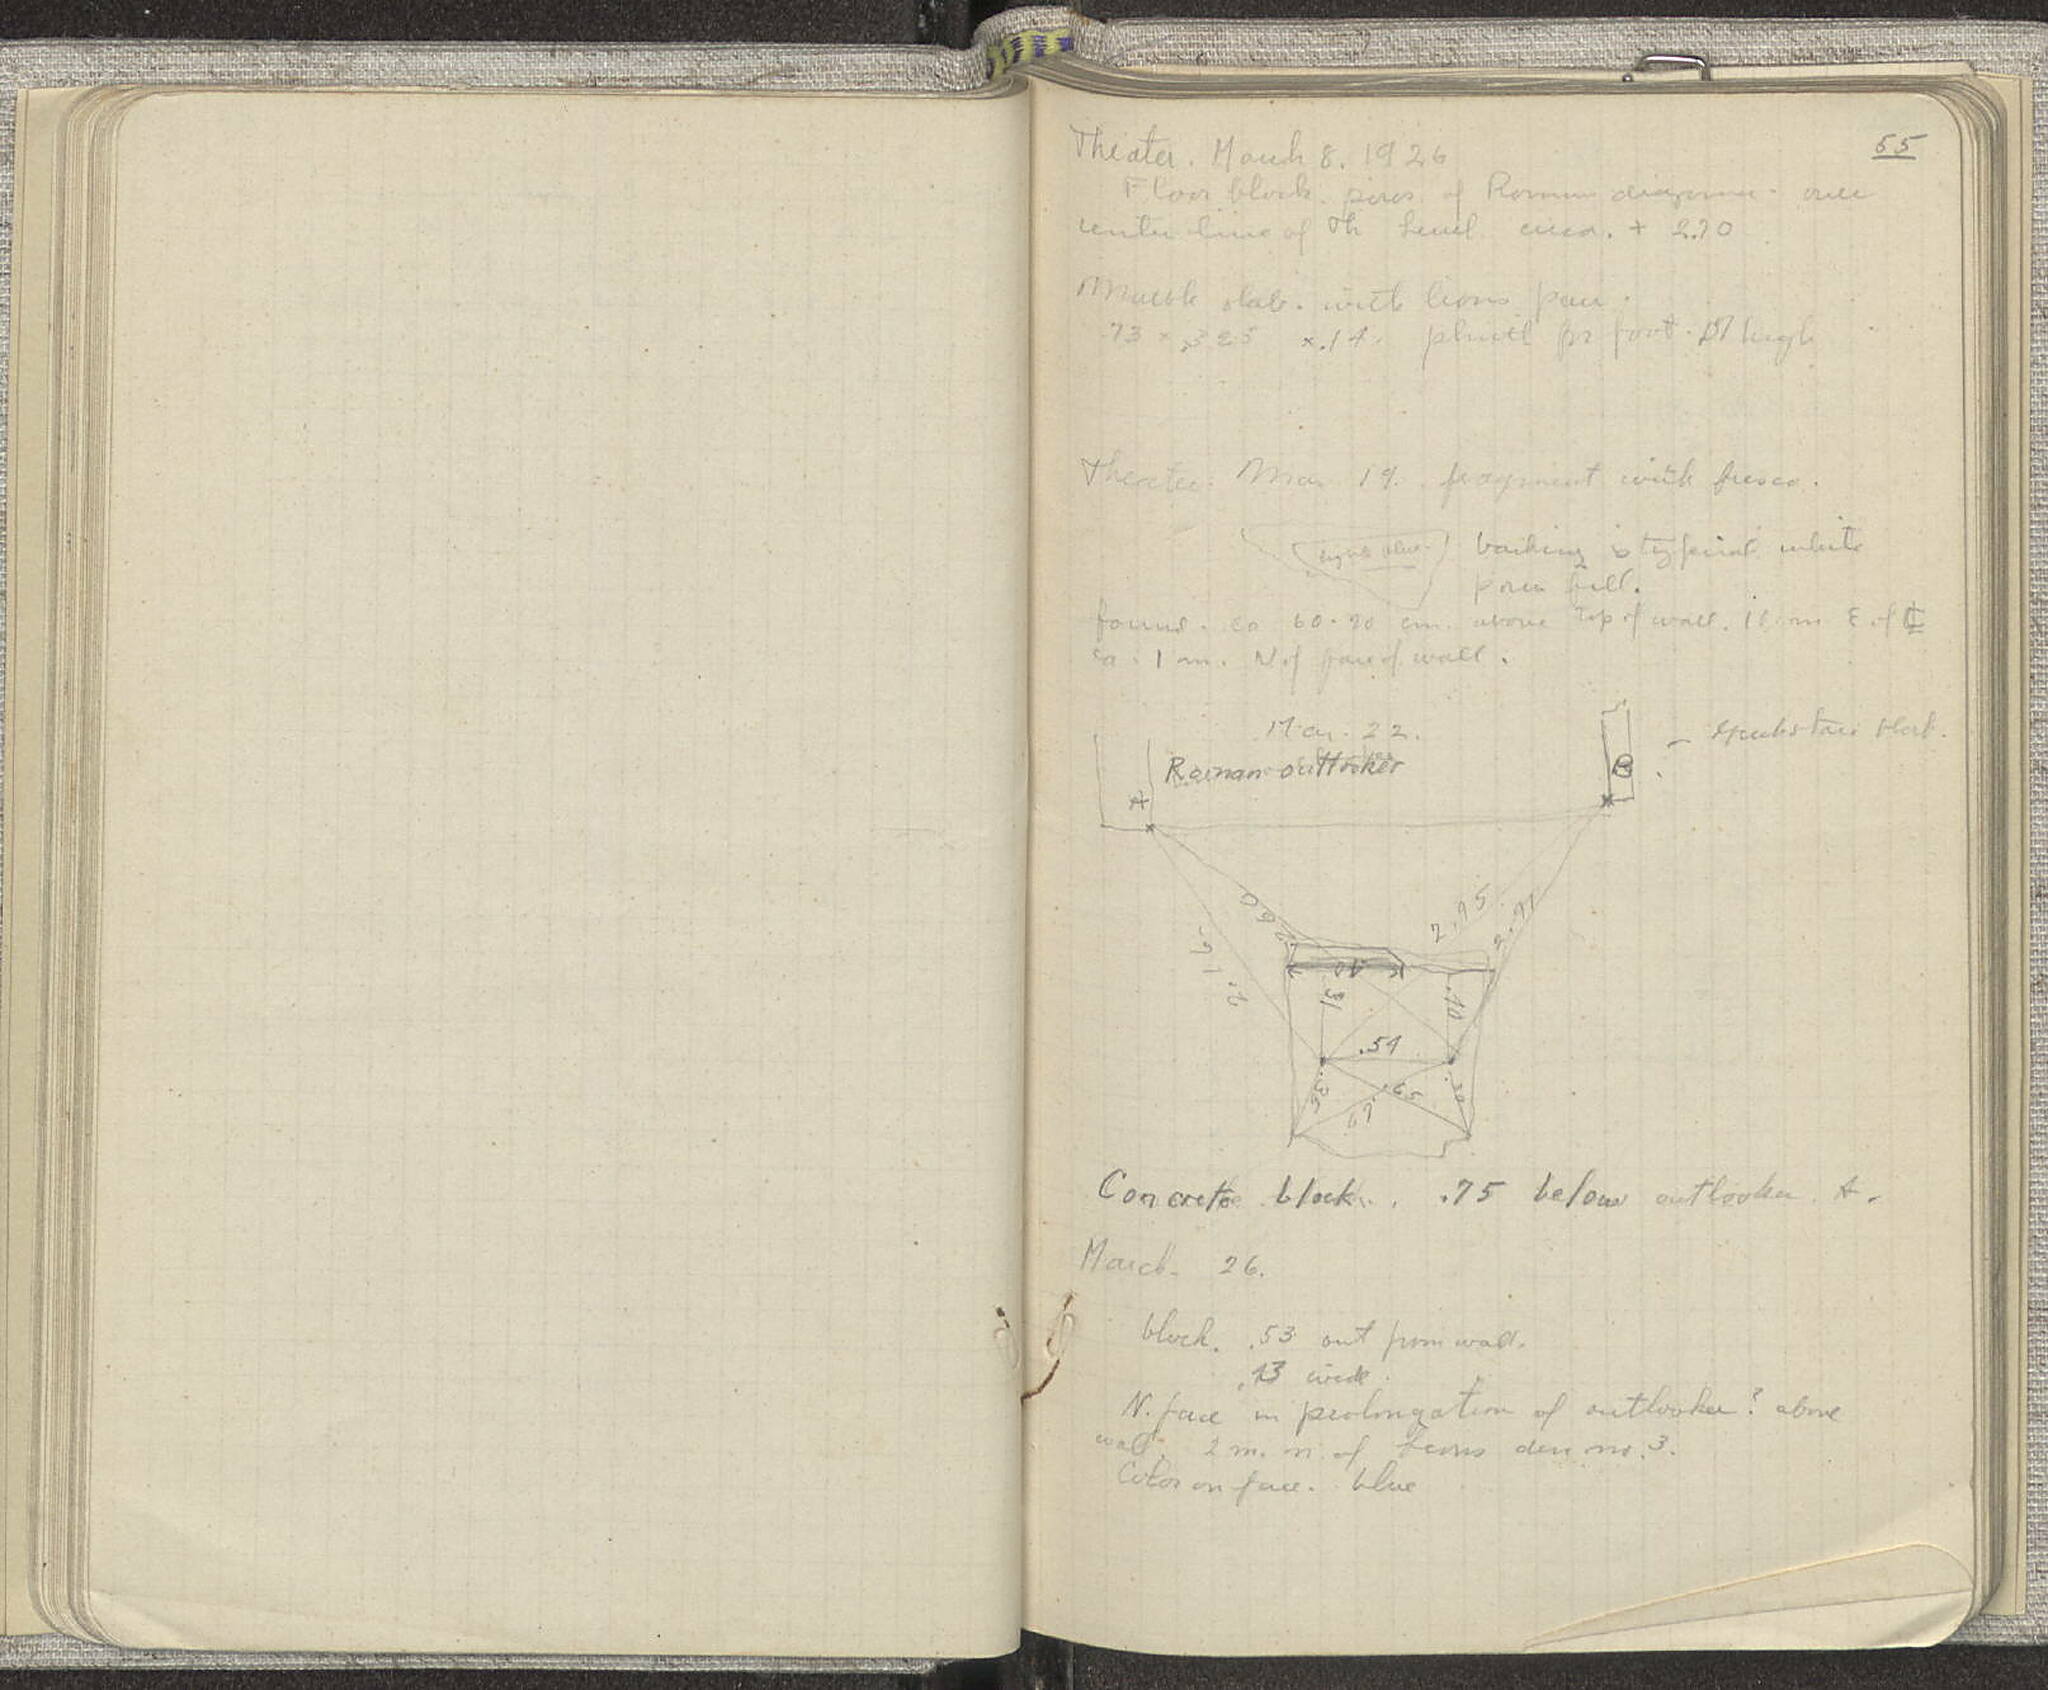 55
Theater. March 8. 1926
Floor block. poros of Roman diazoma. over
center line of Th Level circa. + 2.70
Marble slab. with lions paw.
.73 × .325 × .14. plinth for foot. high
Theater. Mar 19. fragment with fresco.
light blue
backing is typical white
poros fill.
found. ca 60-70 cm. above top of wall. m E of ℄
ca. 1 m. N of face of wall.
Mar. 22.
Roman outlooker
A
B
2.60
2.16
2.95
2.91
.40
.31
.40
.54
.35
.65
.67
Concrete block. .75 below outlooker A.
March 26.
block. .53 out from wall.
.43 wide.
N. face in prolongation of outlooker? above
wall. 2 m. n. of Lions den no. 3.
Color on face. blue